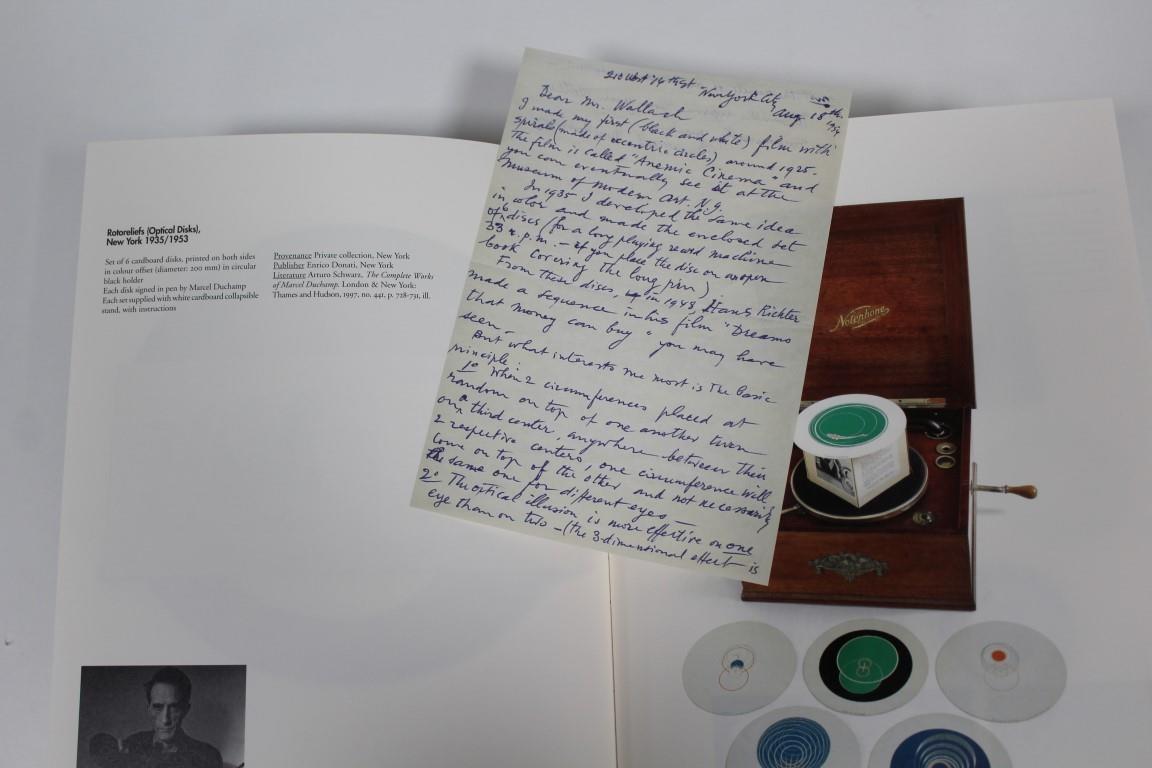 Rotoreliefs (Optical Disks),
New York 1935/1953
Set of 6 cardboard disks, printed on both sides
in colour offset (diameter: 200 mm) in circular
black holder
Each disk signed in pen by Marcel Duchamp
Each set supplied with white cardboard collapsible
stand, with instructions
Provenance Private collection, New York
Publisher Enrico Donati, New York
Literature Arturo Schwarz, The Complete Works
of Marcel Duchamp. London & New York:
Thames and Hudson, 1997, no. 441, p. 728-731, ill.
210 West 14th St
New York City
Aug 18th
Dear Mr. Wallach
I made my first (black and white) film with
spirals (made of eccentric circles) around 1925.
The film is called "Anemic Cinema" and
you can eventually see it at the
Museum of Modern Art. N.Y.
In 1935 I developed the same idea
in color and made the enclosed set
of 6 discs (for a long playing record machine
33 r.p.m. – if you place the disc on an open
book covering the long pin)
From these discs, in 1943, Hans Richter
made a sequence in his film "Dreams
that money can buy" you may have
seen –
But what interests me most is the basic
principle:
1º When 2 circumferences placed at
random on top of one another turn
on a third center, anywhere between their
2 respective centers, one circumference will
come on top of the other and not necessarily
the same one for different eyes –
2º The optical illusion is more effective on one
eye than on two – (the 3-dimensional effect is
Notephone